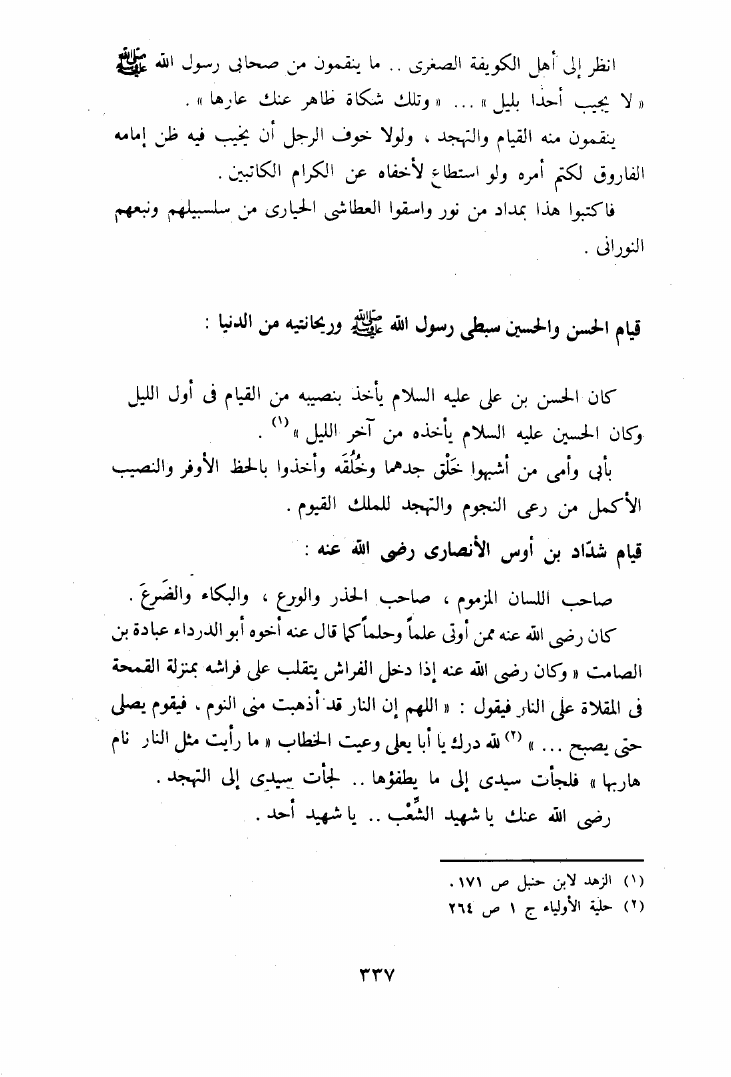 انظر إلى أهل الكويفة الصغرى .. ما ينقمون من صحابى رسول الله ﷺ
« لا يجيب أحدًا بليل » ... « وتلك شكاة ظاهر عنك عارها » .
ينقمون منه القيام والتهجد ، ولولا خوف الرجل أن يخيب فيه ظن إمامه
الفاروق لكتم أمره ولو استطاع لأخفاه عن الكرام الكاتبين .
فاكتبوا هذا بمداد من نور واسقوا العطاشى الحيارى من سلسبيلهم ونبعهم
النورانى .
قيام الحسن والحسين سبطى رسول الله ﷺ وريحانتيه من الدنيا :
كان الحسن بن على عليه السلام يأخذ بنصيبه من القيام فى أول الليل
وكان الحسين عليه السلام يأخذه من آخر الليل » (١) .
بأبى وأمى من أشبهوا خَلْق جدهما وخُلُقَه وأخذوا بالحظ الأوفر والنصيب
الأكمل من رعى النجوم والتهجد للملك القيوم .
قيام شدّاد بن أوس الأنصارى رضى الله عنه :
صاحب اللسان المزموم ، صاحب الحذر والورع ، والبكاء والضَرعَ .
كان رضى الله عنه ممن أوتى علماً وحلماً كما قال عنه أخوه أبو الدرداء عبادة بن
الصامت « وكان رضى الله عنه إذا دخل الفراش يتقلب على فراشه بمنزلة القمحة
فى المقلاة على النار فيقول : « اللهم إن النار قد أذهبت منى النوم . فيقوم يصلى
حتى يصبح ... » (٢) لله درك يا أبا يعلى وعيت الخطاب « ما رأيت مثل النار نام
هاربها » فلجأت سيدى إلى ما يطفؤها .. لجأت سيدى إلى التهجد .
رضى الله عنك يا شهيد الشِّعْب .. يا شهيد أحد .
(١) الزهد لابن حنبل ص ١٧١ .
(٢) حلية الأولياء ج ١ ص ٢٦٤
٣٣٧